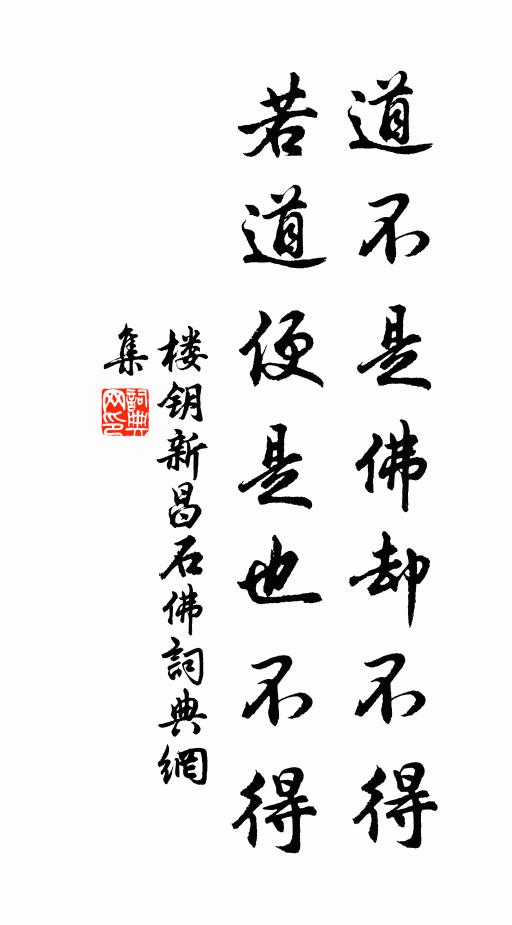 道不是佛却不得
若道便是也不得
楼钥新昌石佛詞典網
集
詞典
网印